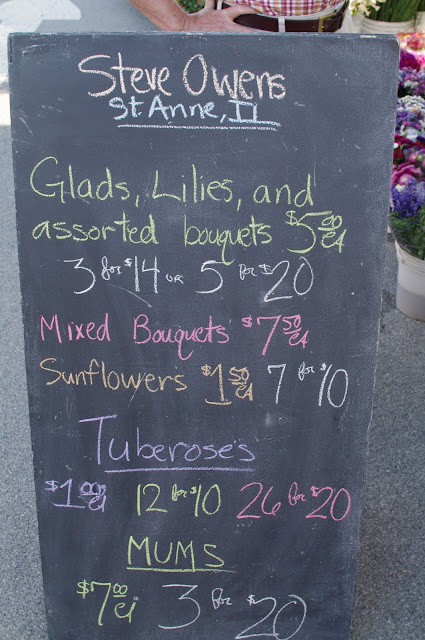 Steve Owens
St. Anne, Il
Glads, Lilies, and
assorted bouquets $5.00 ea
3 for $14 or 5 for $20
Mixed Bouquets $7.50 ea
Sunflowers $1.50 ea 7 for $10
Tuberoses
$1.00 ea 12 for $10 26 for $20
MUMS
$7.00 ea 3 for $20